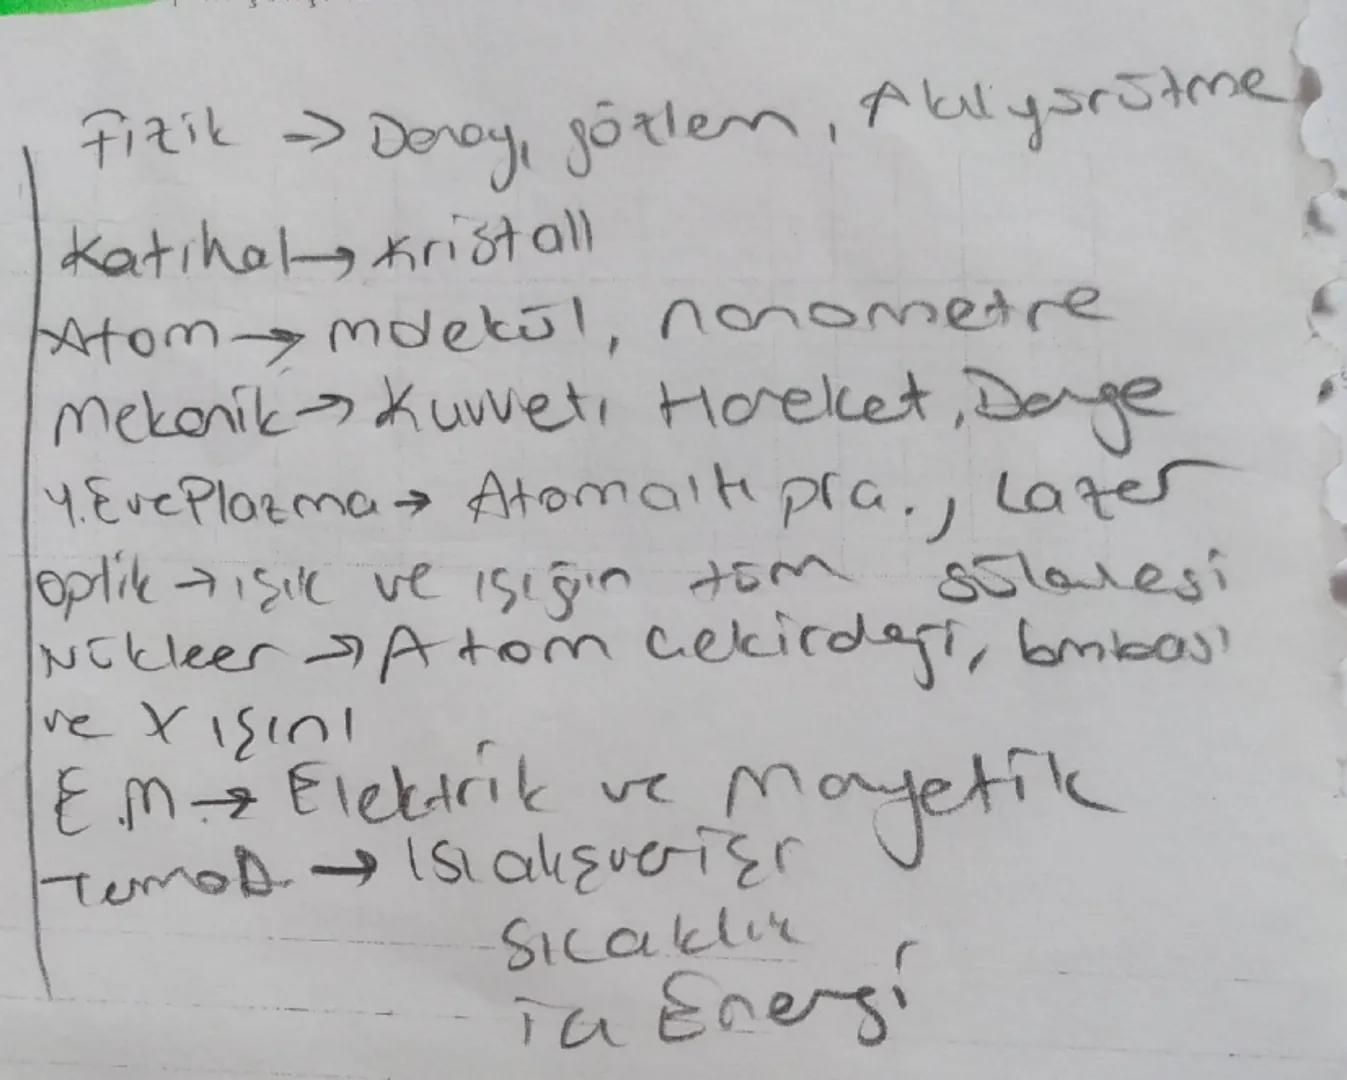 Fizik → Deney, gözlem, Akılyürütme
Katıhal → Kristall
Atom → molekül, nanometre
Mekanik → Kuvvet, Hareket, Denge
Y.E ve Plazma → Atomaltı pra., Lazer
Optik → ışık ve ışığın tüm
Nükleer → Atom Çekirdeği, bombası
ve X ışını
E.M → Elektrik ve Manyetik
TermoD. → Isı alışverişi
Sıcaklık
İç Enerji